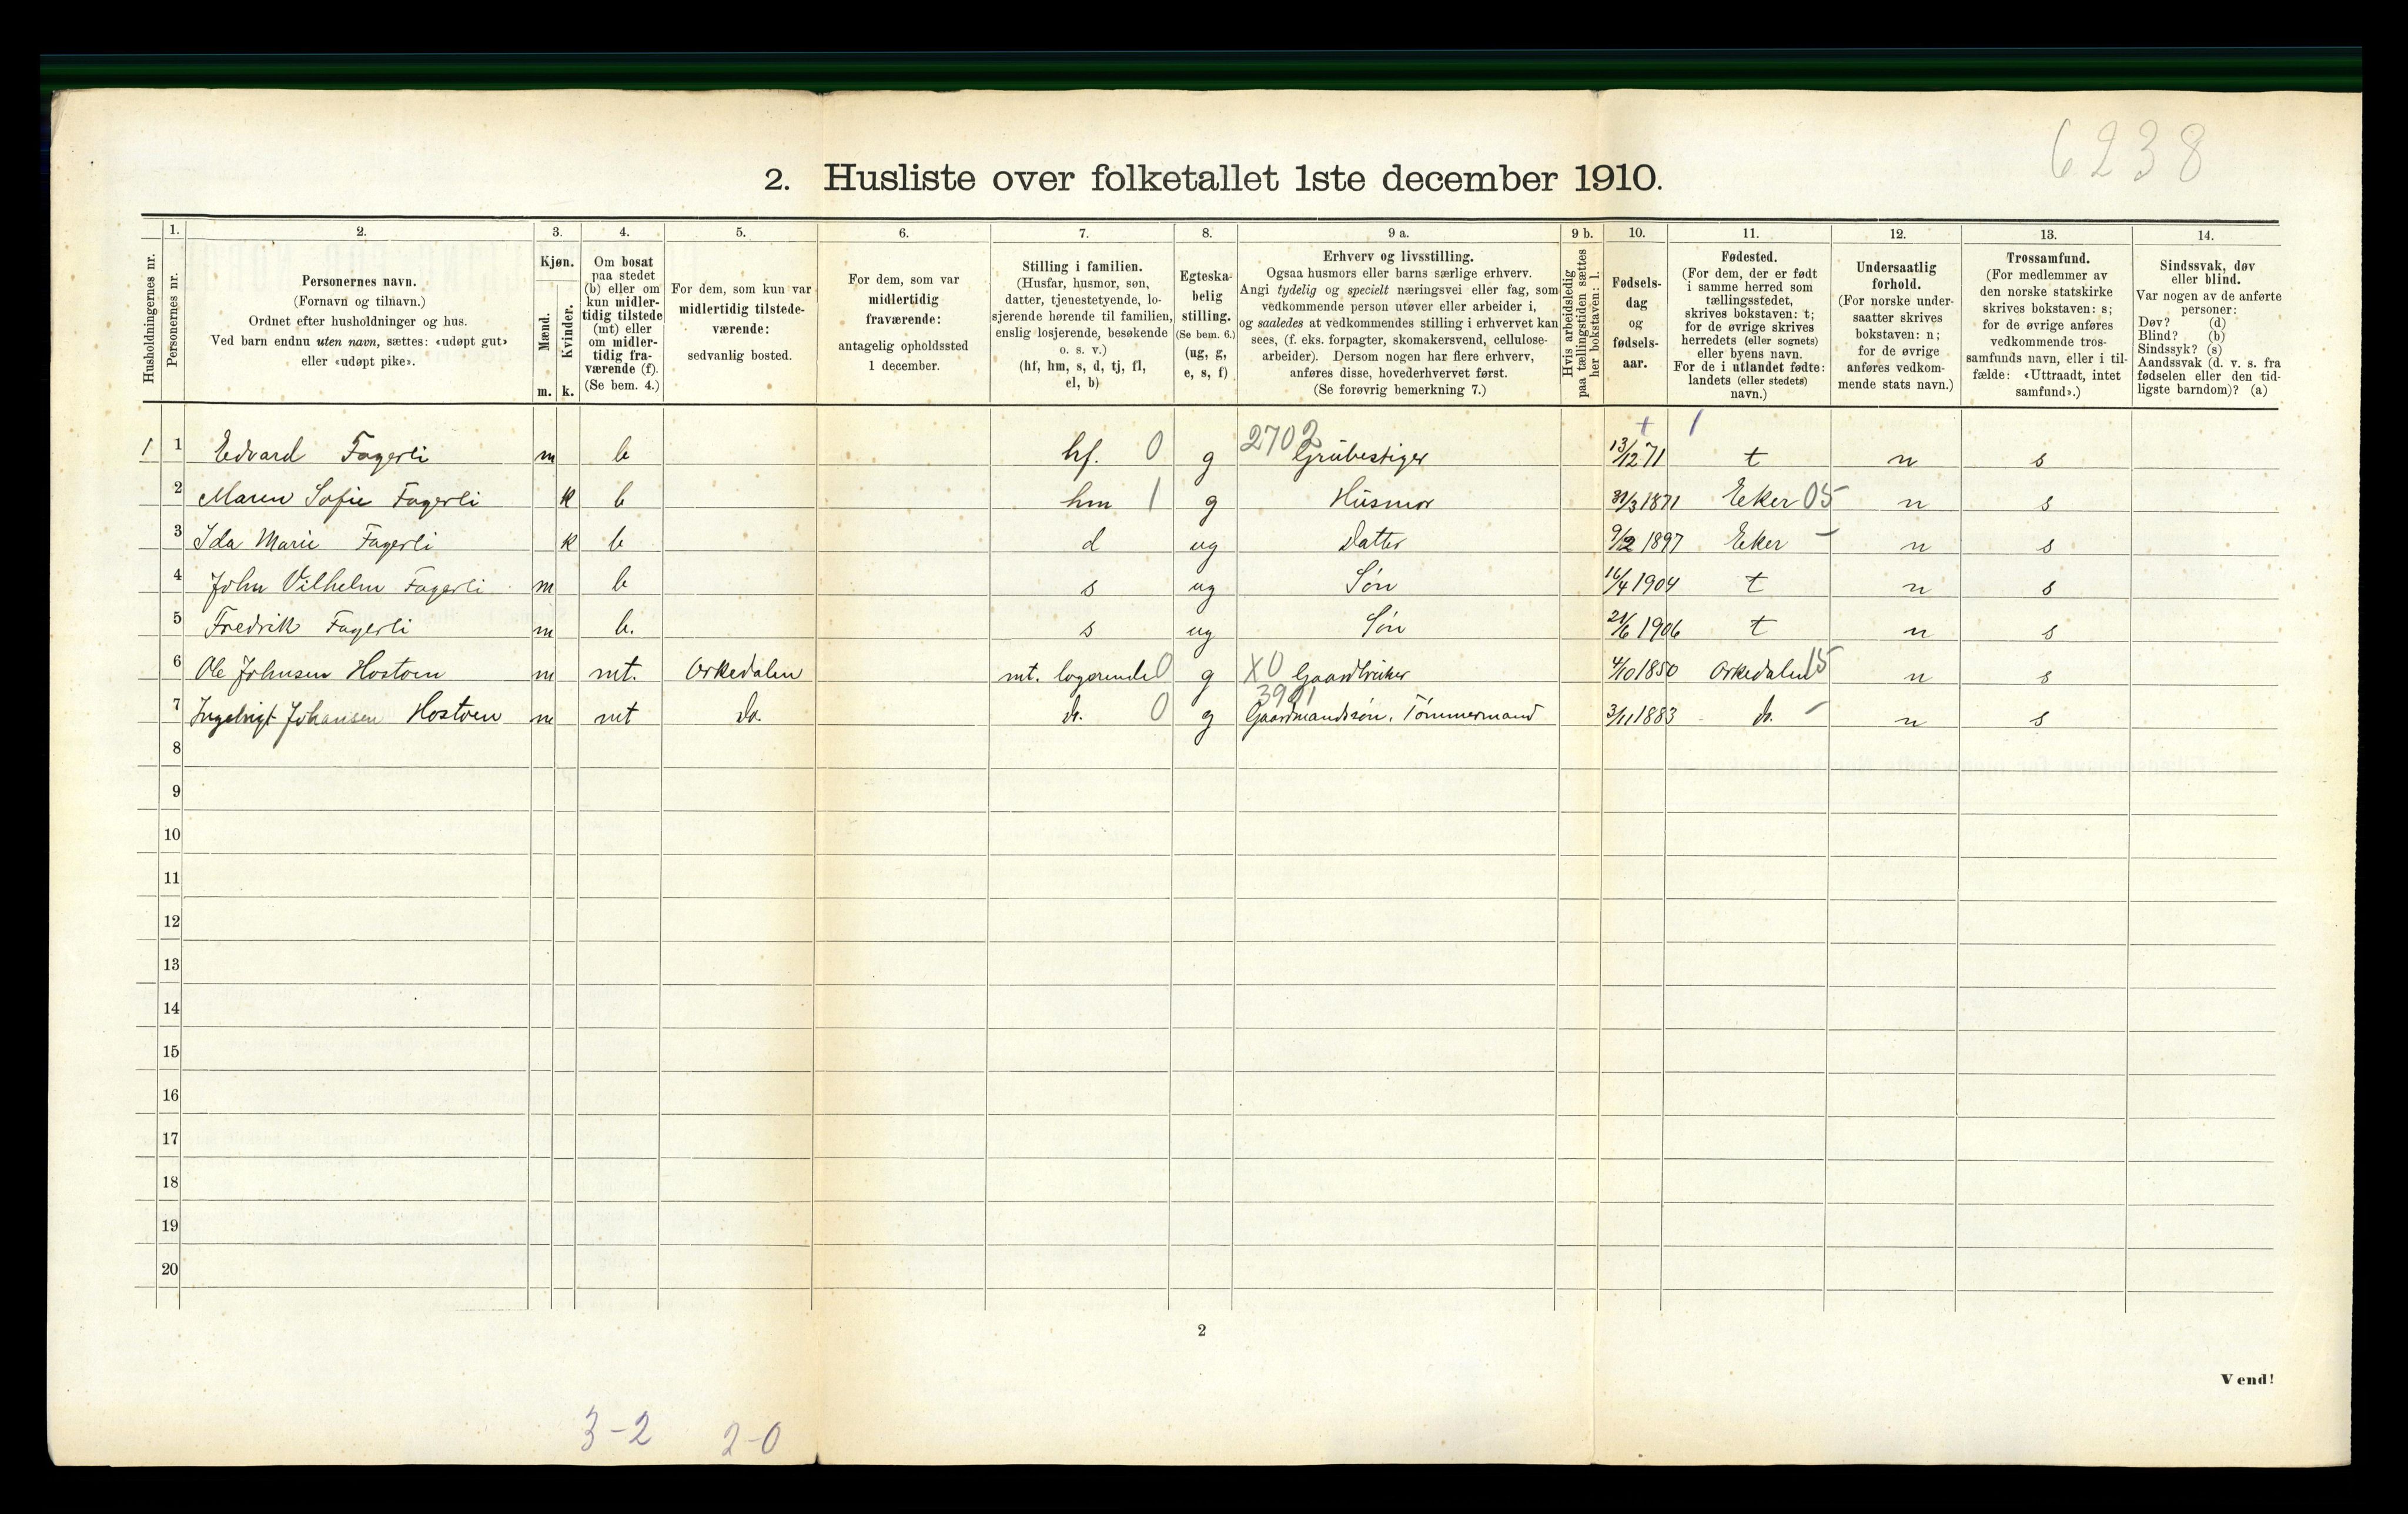 6238
2. Husliste over folketallet 1ste december 1910.
Husholdningernes nr.
1.
Personernes nr.
2.
Personernes navn.
(Fornavn og tilnavn.)
Ordnet efter husholdninger og hus.
Ved barn endnu uten navn, sættes: «udøpt gut»
eller «udøpt pike».
3.
Kjøn.
Mænd.
Kvinder.
m. k.
4.
Om bosat
paa stedet
(b) eller om
kun midler-
tidig tilstede
(mt) eller
om midler-
tidig fra-
værende (f).
(Se bem. 4.)
5.
For dem, som kun var
midlertidig tilstede-
værende:
sedvanlig bosted.
6.
For dem, som var
midlertidig
fraværende:
antagelig opholdssted
1 december.
7.
Stilling i familien.
(Husfar, husmor, søn,
datter, tjenestetyende, lo-
sjerende hørende til familien,
enslig losjerende, besøkende
o. s. v.)
(hf, hm, s, d, tj, fl,
el, b)
8.
Egteska-
belig
stilling.
(Se bem. 6.)
(ug, g,
e, s, f)
9 a.
Erhverv og livsstilling.
Ogsaa husmors eller barns særlige erhverv.
Angi tydelig og specielt næringsvei eller fag, som
vedkommende person utøver eller arbeider i,
og saaledes at vedkommendes stilling i erhvervet kan
sees, (f. eks. forpagter, skomakersvend, cellulose-
arbeider). Dersom nogen har flere erhverv,
anføres disse, hovederhvervet først.
(Se forøvrig bemerkning 7.)
9 b.
Hvis arbeidsledig
paa tællingstiden sættes
her bokstaven: l.
10.
Fødsels-
dag
og
fødsels-
aar.
11.
Fødested.
(For dem, der er født
i samme herred som
tællingsstedet,
skrives bokstaven: t;
for de øvrige skrives
herredets (eller sognets)
eller byens navn.
For de i utlandet fødte:
landets (eller stedets)
navn.)
12.
Undersaatlig
forhold.
(For norske under-
saatter skrives
bokstaven: n;
for de øvrige
anføres vedkom-
mende stats navn.)
13.
Trossamfund.
(For medlemmer av
den norske statskirke
skrives bokstaven: s;
for de øvrige anføres
vedkommende tros-
samfunds navn, eller i til-
fælde: «Uttraadt, intet
samfund».)
14.
Sindssvak, døv
eller blind.
Var nogen av de anførte
personer:
Døv? (d)
Blind? (b)
Sindssyk? (s)
Aandssvak (d. v. s. fra
fødselen eller den tid-
ligste barndom)? (a)
1 1 Edvard Fagerli m b hf. 0 g 2702 Grubestiger 13/12 71 t n s
2 Maren Sofie Fagerli k b hm 1 g Husmor 31/3 1871 Eker 05 n s
3 Ida Marie Fagerli k b d ug Datter 9/12 1897 Eker – n s
4 John Vilhelm Fagerli m b s ug Søn 16/4 1904 t n s
5 Fredrik Fagerli m b. s ug Søn 21/6 1906 t n s
6 Ole Johnsen Hostoen m mt. Orkedalen mt. logerende 0 g X0 Gaardbruker 4/10 1850 Orkedalen 15 n s
7 Ingebrigt Johansen Hostoen m mt do. do. 0 g 3901 Gaardmandssøn, Tømmermand 3/11 1883 do. – n s
8
9
10
11
12
13
14
15
16
17
18
19
20
2
Vend!
3-2 2-0